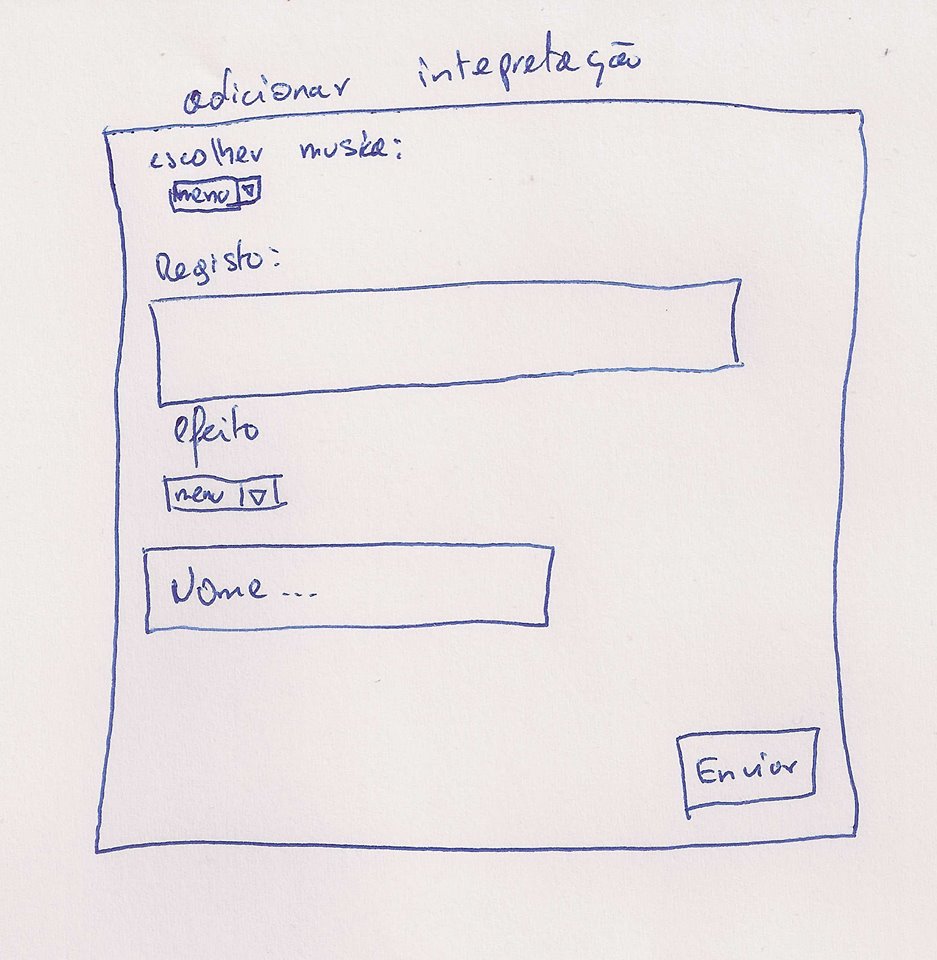 adicionar intepretação
escolher musica:
menu
Registo:
efeito
menu
Nome ...
Enviar